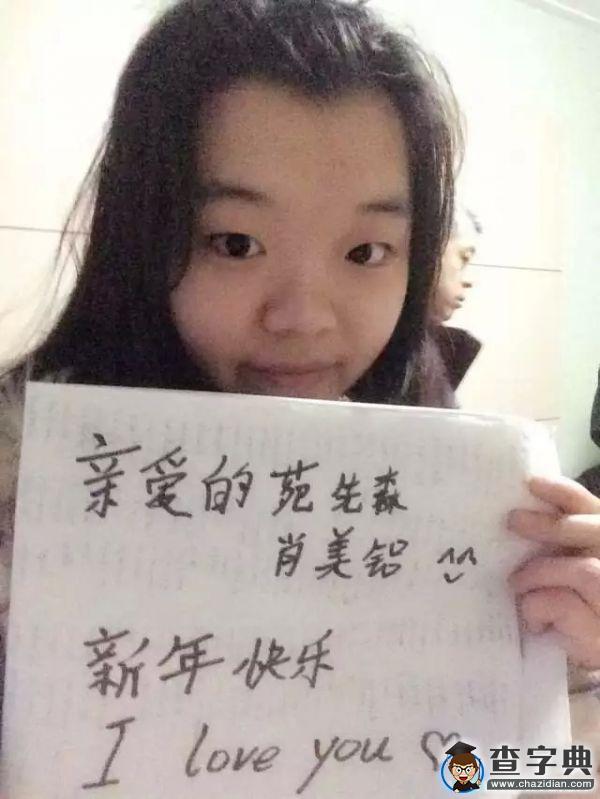 亲爱的 苑先森
肖美铝 ^^
新年快乐
I love you ♡
查字典
www.chazidian.com